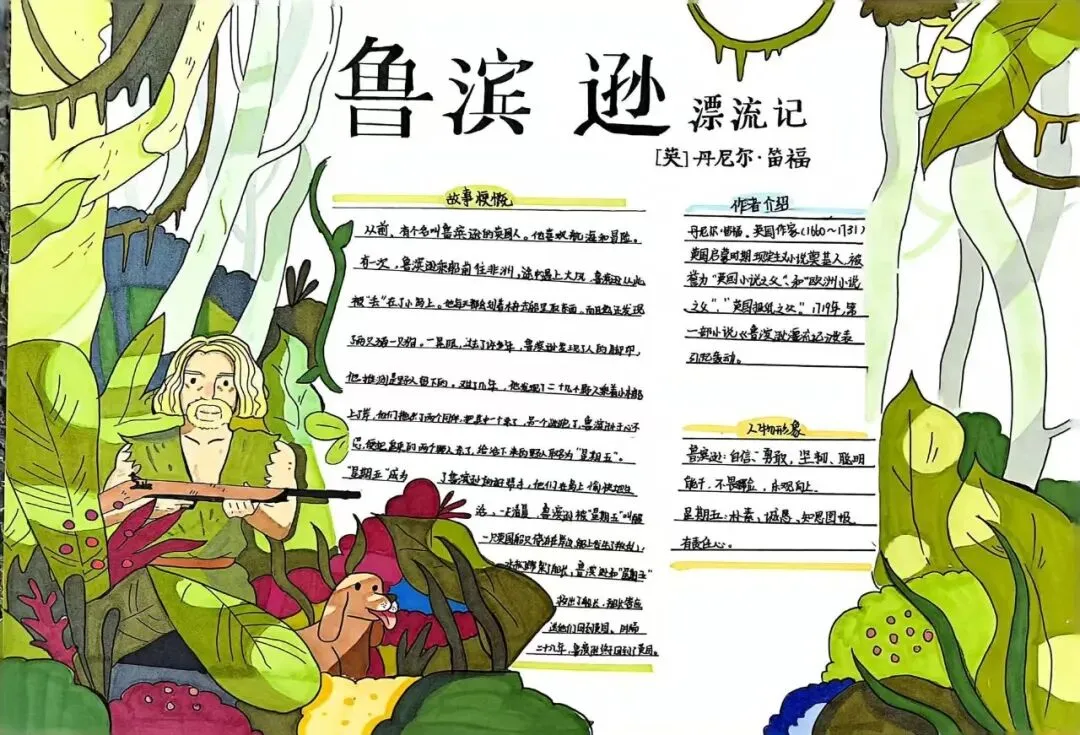 鲁滨逊漂流记
[英]丹尼尔·笛福
故事梗概
从前，有个名叫鲁滨逊的英国人。他喜欢航海和冒险。
有一次，鲁滨逊乘船前往非洲，途中遇上大风，鲁滨逊从此
被"丢"在了小岛上。他每天都会划着木舟去船里取东西。而且他还发现
了两只猫一只狗。一晃眼，过去了许多年，鲁滨逊发现了人的脚印，
他推测是野人留下的。过了几年，他发现了二十几个野人乘着小木船
上了岸，他们拖出了两个同伴，把其中一个杀了，另一个逃跑了，鲁滨逊于心不
忍，便把追来的两个野人杀了，给活下来的野人取名为"星期五"。
"星期五"成为 了鲁滨逊的好帮手，他们在岛上愉快地生
活，一天清晨，鲁滨逊被"星期五"叫醒
一只英国船只停泊在岸边，船上发生了叛乱，
鲁滨逊和"星期五"
救出了船长，船长答应
送他们回到英国，时隔
二十八年，鲁滨逊终于回到了英国。
作者介绍
丹尼尔·笛福，英国作家(1660～1731)
英国启蒙时期现实主义小说奠基人，被
誉为"英国小说之父"和"欧洲小说
之父"，"英国报纸之父"。1719年，第
一部小说《鲁滨逊漂流记》发表
引起轰动。
人物形象
鲁滨逊：自信、勇敢，坚韧、聪明
能干，不畏艰险，乐观向上
星期五：朴素、诚恳、知恩图报，
有责任心。